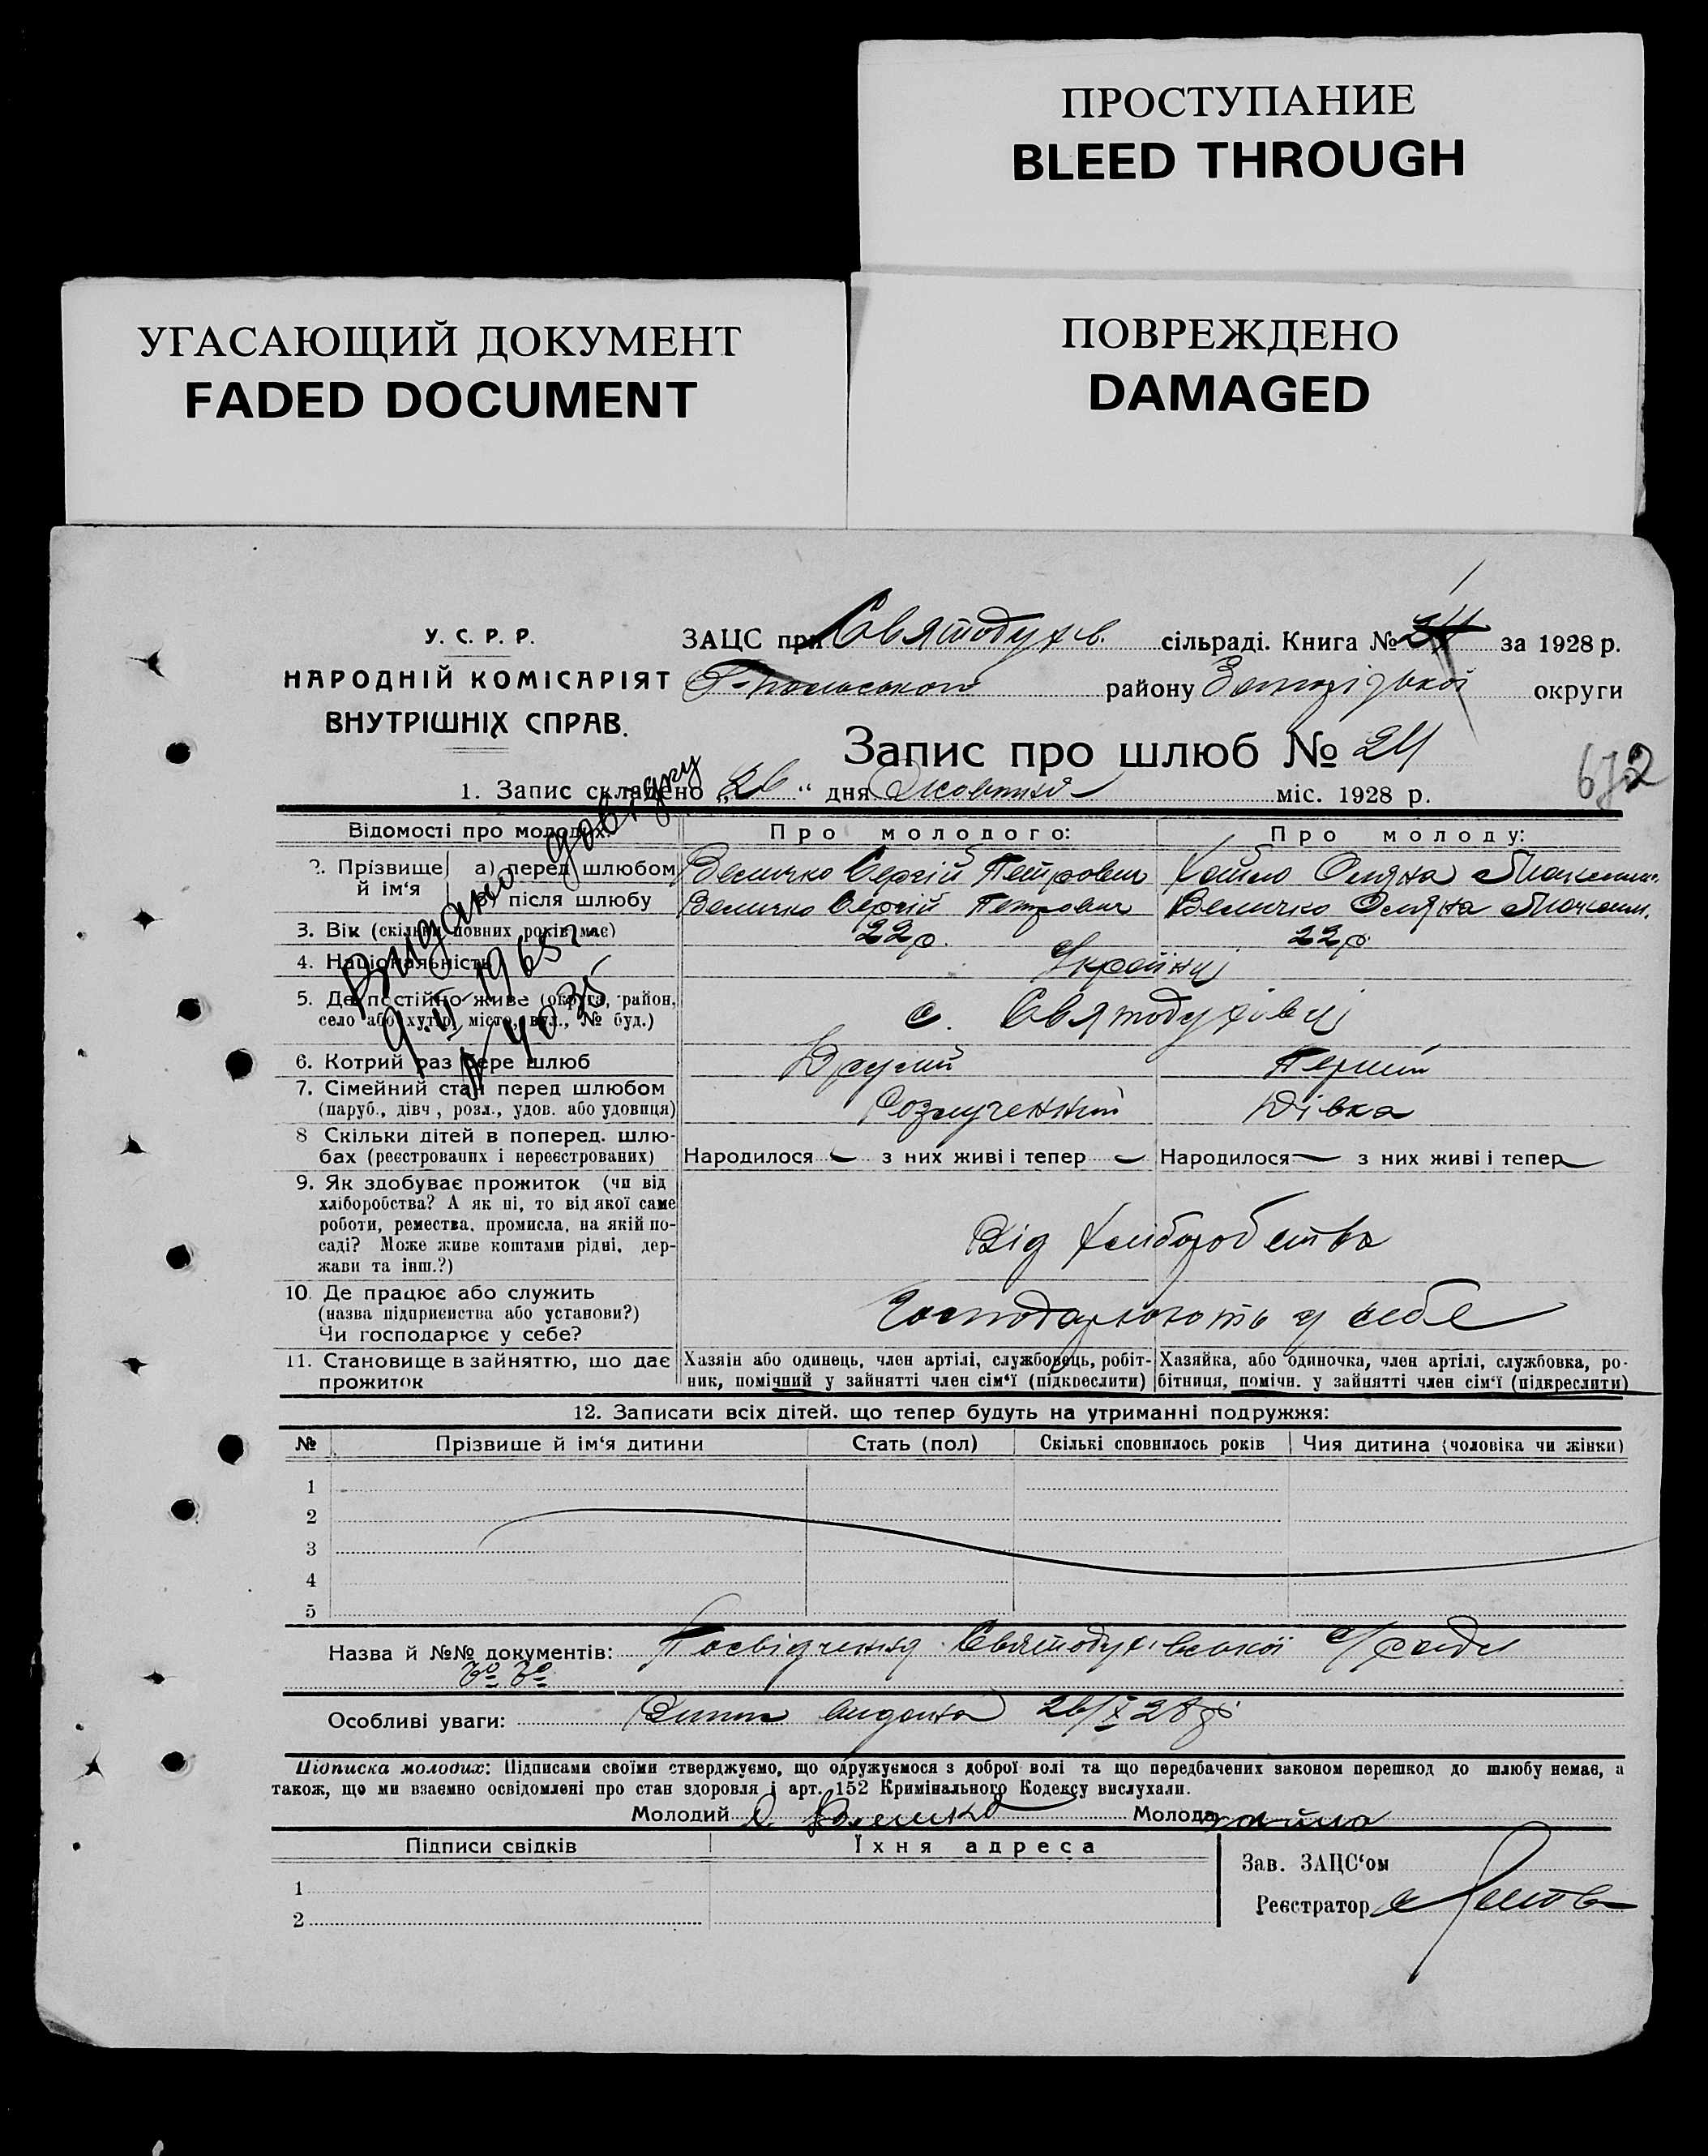 ПРОСТУПАНИЕ
BLEED THROUGH
УГАСАЮЩИЙ ДОКУМЕНТ
FADED DOCUMENT
ПОВРЕЖДЕНО
DAMAGED
У. С. Р. Р.
НАРОДНІЙ КОМІСАРІЯТ
ВНУТРІШНІХ СПРАВ.
ЗАЦС при Святодухів. сільраді. Книга № 24 за 1928 р.
району округи
Запис про шлюб № 24
672
1. Запис складено „26“ дня Жовтня міс. 1928 р.
Видано довідку
9.IV 1965 г.
N 4035
Відомості про молодих: Про молодого: Про молоду:
2. Прізвище й ім'я а) перед шлюбом Величко Сергій Петрович Хайло Оляна
б) після шлюбу Величко Сергій Петрович Величко Оляна
3. Вік (скільки повних років має) 22 р. 22 р.
4. Національність Українці
5. Де постійно живе (округа, район,
село або хутір, місто, вул., № буд.) с. Святодухівці
6. Котрий раз бере шлюб Другий Перший
7. Сімейний стан перед шлюбом
(паруб., дівч, розл., удов. або удовиця) Розлученний Дівка
8 Скільки дітей в поперед. шлю-
бах (реєстрованих і нереєстрованих) Народилося — з них живі і тепер — Народилося — з них живі і тепер —
9. Як здобуває прожиток (чи від
хліборобства? А як ні, то від якої саме
роботи, ремества, промисла, на якій по-
саді? Може живе коштами рідні, дер-
жави та інш.?)
Від хліборобства
10. Де працює або служить
(назва підприєнства або установи?)
Чи господарює у себе?
Господарюють у себе
11. Становище в зайняттю, що дає
прожиток
Хазяін або одинець, член артілі, службовець, робіт-
ник, помічний у зайнятті член сім'ї (підкреслити)
Хазяйка, або одиночка, член артілі, службовка, ро-
бітниця, помічн. у зайнятті член сім'ї (підкреслити)
12. Записати всіх дітей. що тепер будуть на утриманні подружжя:
№ Прізвище й ім'я дитини Стать (пол) Скількі сповнилось років Чия дитина (чоловіка чи жінки)
1
2
3
4
5
Назва й №№ документів: Посвідчення Святодухівської с/ради
Особливі уваги: видана 26/X 28 р.
Підписка молодих: Підписами своїми стверджуємо, що одружуємося з доброї волі та що передбачених законом перешкод до шлюбу немає, а
також, що ми взаємно освідомлені про стан здоровля і арт. 152 Кримінального Кодексу вислухали.
Молодий С. Величко Молода Хайло
Підписи свідків Їхня адреса
1
2
Зав. ЗАЦС'ом
Реєстратор